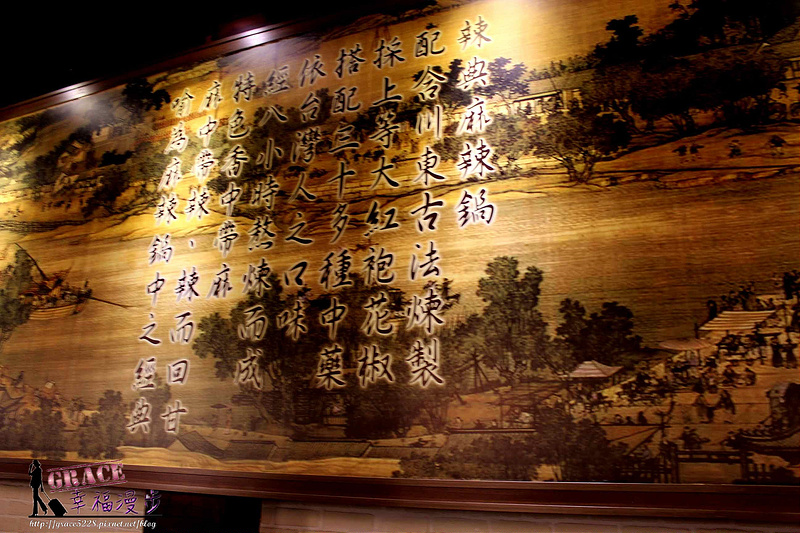 辣典麻辣鍋
配含川東古法煉製
採上等大紅袍花椒
搭配三十多種中藥
依台灣人之口味
經八小時熬煉而成
特色香中帶麻
麻中帶辣、辣而回甘
喻為麻辣鍋中之經典
GRACE
幸福漫步
http://grace5228.pixnet.net/blog